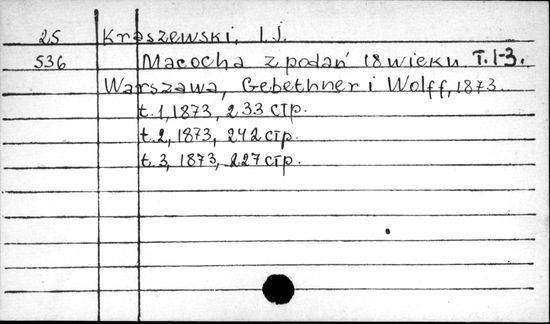 25 Kraszewski, I.J.
536 Macocha z podań 18 wieku. T. 1-3.
Warszawa, Gebethner i Wolff, 1873.
t.1, 1873, 233 стр.
t.2, 1873, 242 стр.
t.3, 1873, 227 стр.